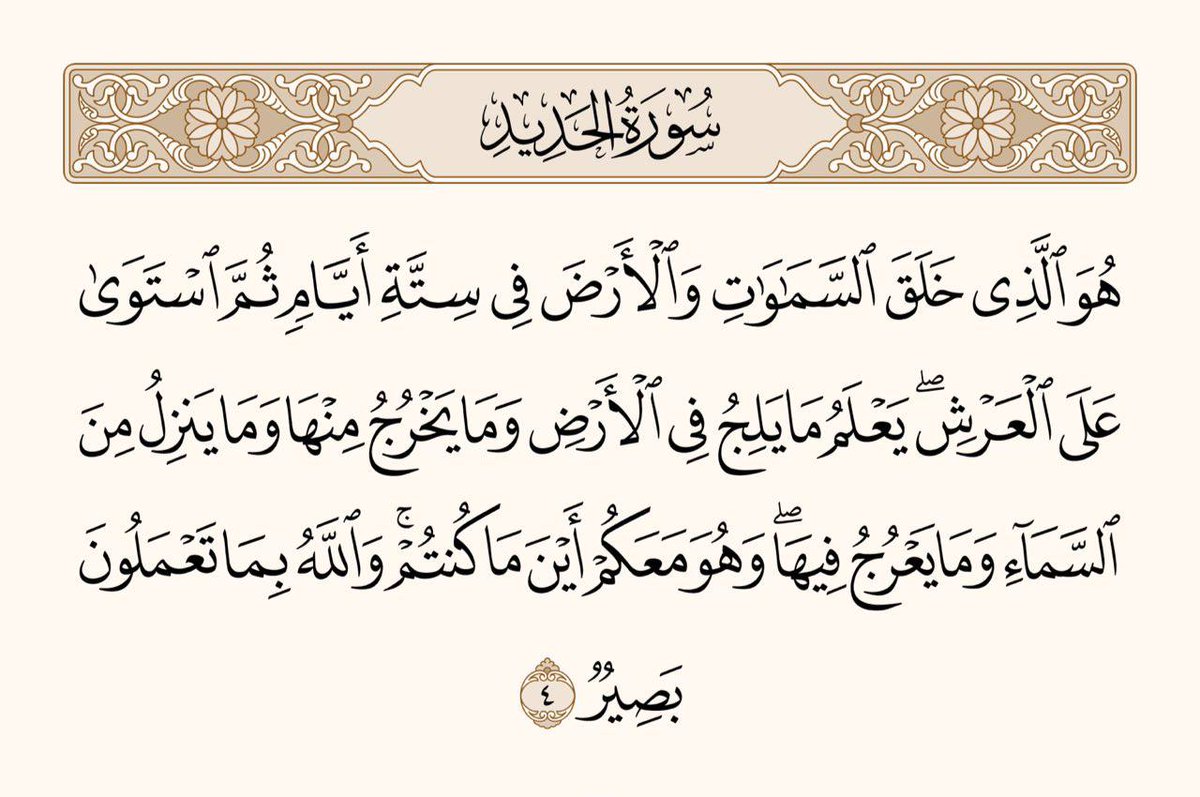 سُورَةُ الحَدِيدِ
هُوَ ٱلَّذِى خَلَقَ ٱلسَّمَـٰوَٰتِ وَٱلْأَرْضَ فِى سِتَّةِ أَيَّامٍ ثُمَّ ٱسْتَوَىٰ
عَلَى ٱلْعَرْشِ ۖ يَعْلَمُ مَا يَلِجُ فِى ٱلْأَرْضِ وَمَا يَخْرُجُ مِنْهَا وَمَا يَنزِلُ مِنَ
ٱلسَّمَآءِ وَمَا يَعْرُجُ فِيهَا ۖ وَهُوَ مَعَكُمْ أَيْنَ مَا كُنتُمْ ۚ وَٱللَّهُ بِمَا تَعْمَلُونَ
بَصِيرٌ ٤